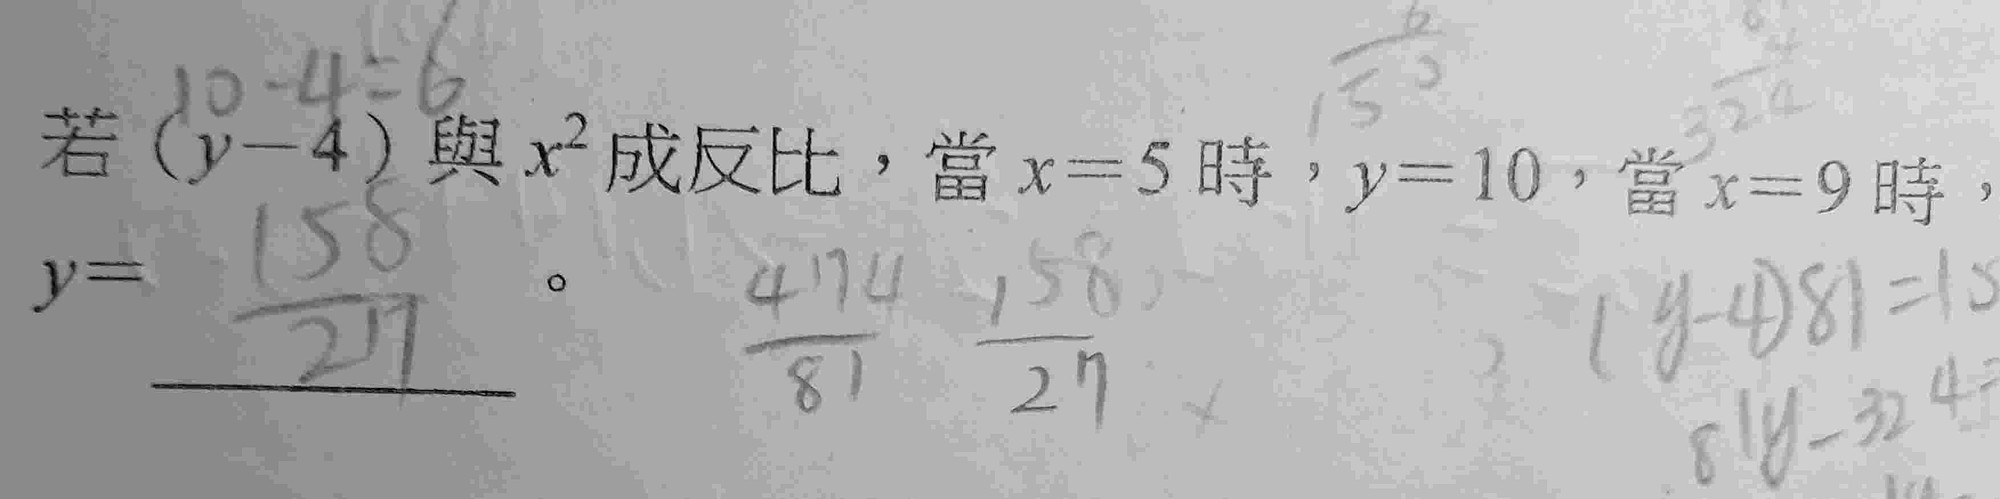 10-4=6
若(y-4)與x²成反比,當x=5時,y=10,當x=9時,
y= 158/27 。
474/81 158/27
(y-4)81=15
81y-324=